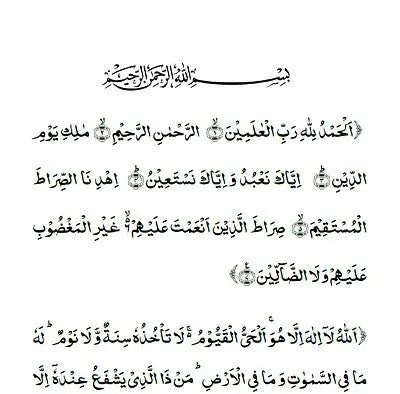 بِسْمِ اللهِ الرَّحْمٰنِ الرَّحِيْمِ
﴿اَلْحَمْدُ لِلّٰهِ رَبِّ الْعٰلَمِيْنَ ۙ﴿۱﴾ الرَّحْمٰنِ الرَّحِيْمِ ۙ﴿۲﴾ مٰلِكِ يَوْمِ
الدِّيْنِ ؕ﴿۳﴾ اِيَّاكَ نَعْبُدُ وَ اِيَّاكَ نَسْتَعِيْنُ ؕ﴿۴﴾ اِهْدِ نَا الصِّرَاطَ
الْمُسْتَقِيْمَ ۙ﴿۵﴾ صِرَاطَ الَّذِيْنَ اَنْعَمْتَ عَلَيْهِمْ ۙ۬ۙ﴿۶﴾ غَيْرِ الْمَغْضُوْبِ
عَلَيْهِمْ وَلَا الضَّآلِّيْنَ ؕ﴿۷﴾﴾
﴿اَللّٰهُ لَآ اِلٰهَ اِلَّا هُوَ ۚ اَلْحَيُّ الْقَيُّوْمُ ۚ لَا تَاْخُذُهٗ سِنَةٌ وَّلَا نَوْمٌ ؕ لَهٗ
مَا فِي السَّمٰوٰتِ وَ مَا فِي الْاَرْضِ ؕ مَنْ ذَا الَّذِيْ يَشْفَعُ عِنْدَهٗٓ اِلَّا